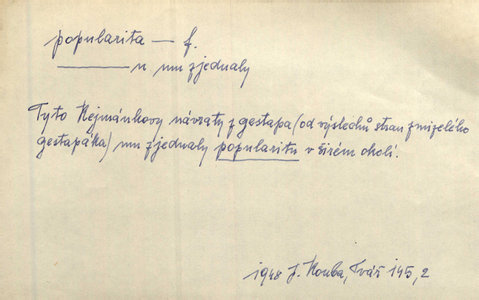 popularita — f.
——— u mu zjednaly
Tyto Nejmánkovy návraty z gestapa (od výslechů stran zmizelého
gestapáka) mu zjednaly popularitu v širém okolí.
1948 J. Kouba, Tvář 145, 2